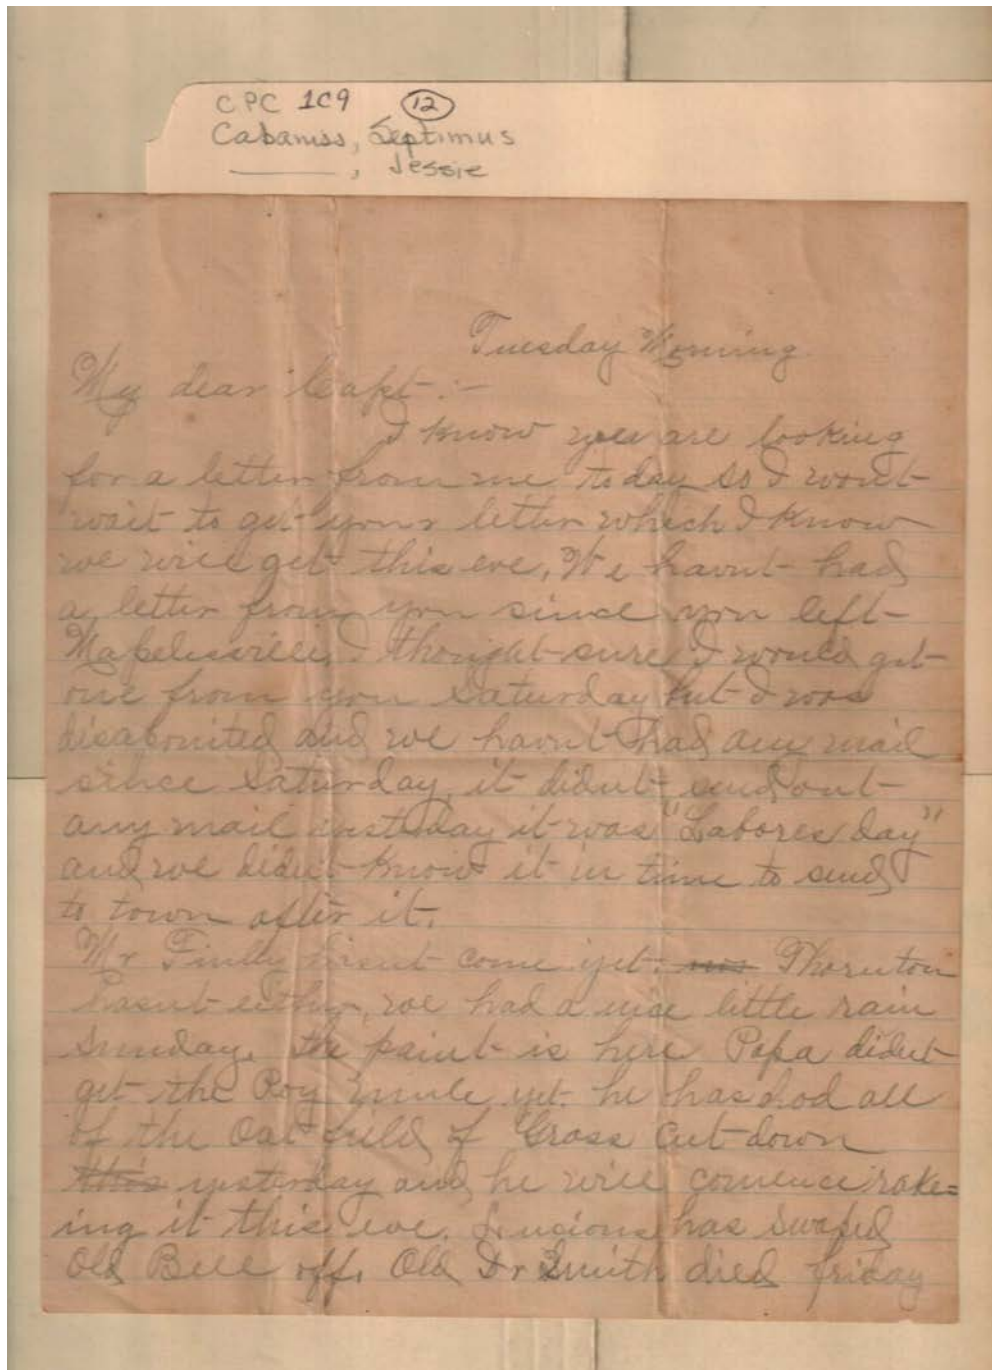 CPC 1C9 12
Cabaniss, Septimus
, Jessie
Tuesday Morning.
My dear Capt :-
I know you are looking
for a letter from me today so I wont
wait to get your letter which I know
we will get this eve, We havnt had
a letter from you since you left
I thought sure I would get
one from you Saturday but I was
disapointed and we havnt had any mail
since Saturday, it didnt send out
any mail yesterday it was "Labores day"
and we didnt know it in time to send
to town after it.
Mr hasnt come yet. Thornton
hasnt either, we had a nice little rain
Sunday. the paint is here Papa didnt
get the Roy mule yet. he has had all
of the Oat field of Grass cut down
this yesterday and he will comence rake=
ing it this eve. Lucious has swaped
Old Bill off. Old Dr Smith died friday